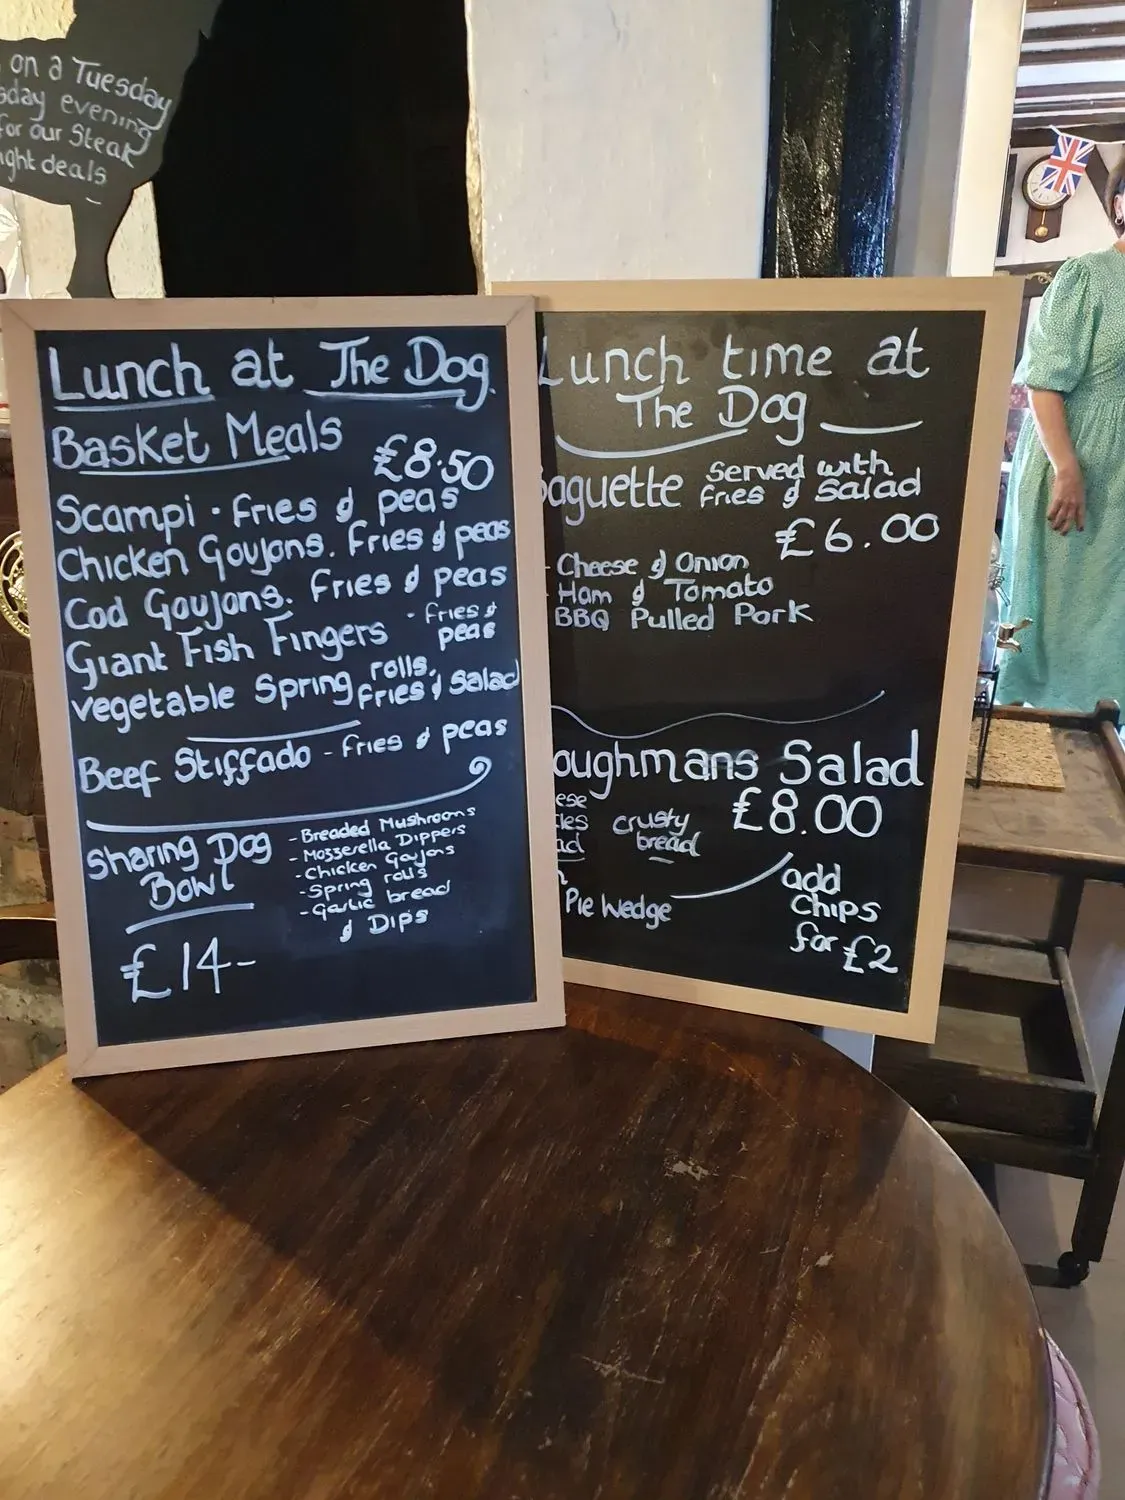 on a Tuesday
sday evening
for our Steak
ght deals
Lunch at The Dog
Basket Meals
£8.50
Scampi · fries & peas
Chicken Goujons. Fries & peas
Cod Goujons. Fries & peas
Giant Fish Fingers - fries & peas
vegetable Spring rolls, fries & salad
Beef Stiffado - fries & peas
Sharing Dog Bowl
- Breaded Mushrooms
- Mozzerella Dippers
- Chicken Goujons
- Spring rolls
- Garlic bread
& Dips
£14-
Lunch time at
The Dog
aguette Served with
fries & salad
£6.00
- Cheese & Onion
- Ham & Tomato
BBQ Pulled Pork
oughmans Salad
£8.00
ese
les crusty
ad bread
Pie Wedge
add
Chips
for £2